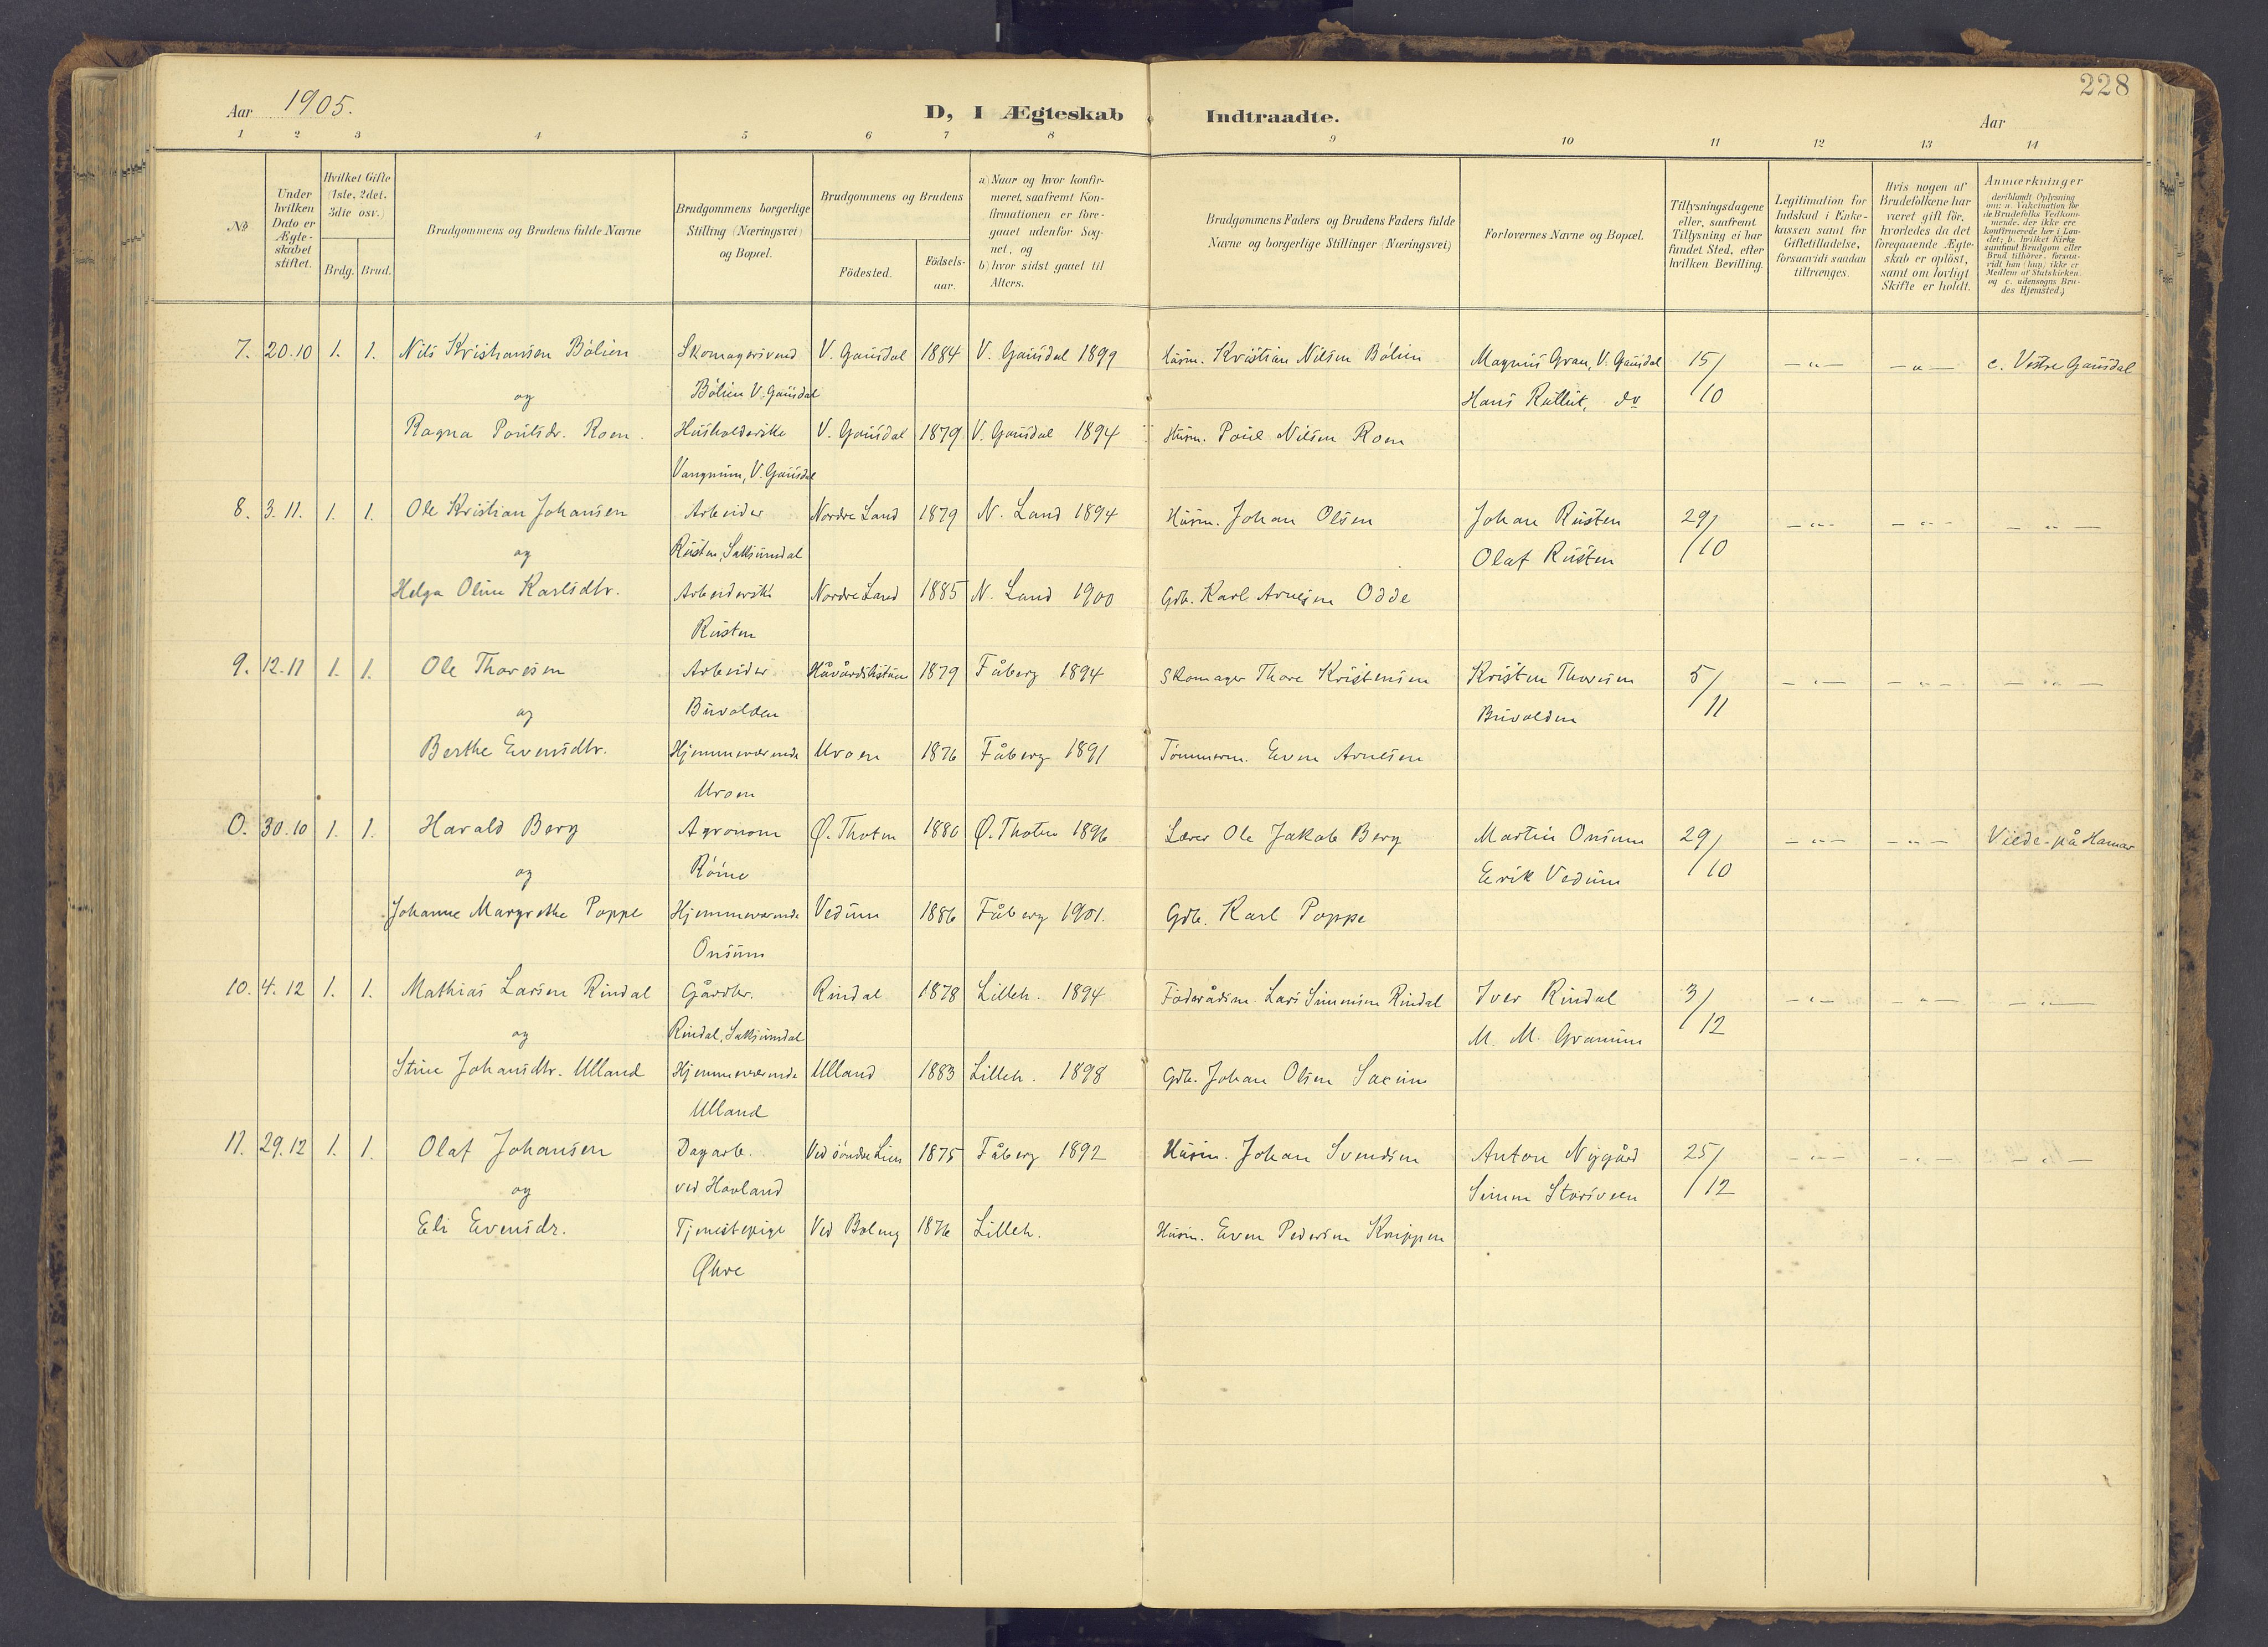 228
Aar 1905. D, I Ægteskab Indtraadte. Aar
1 2 3 4 5 6 7 8 9 10 11 12 13 14
No
Under hvilken Dato er Ægteskabet stiftet.
Hvilket Gifte (1ste, 2det, 3die osv.)
Brdg. Brud.
Brudgommens og Brudens fulde Navne
Brudgommens borgerlige Stilling (Næringsvei) og Bopæl.
Brudgommens og Brudens
Födested. Födselsaar.
a) Naar og hvor konfirmeret, saafremt Konfirmationen er foregaaet udenfor Sognet, og
b) hvor sidst gaaet til Alters.
Brudgommens Faders og Brudens Faders fulde Navne og borgerlige Stillinger (Næringsvei)
Forlovernes Navne og Bopæl.
Tillysningsdagene eller, saafremt Tillysning ei har fundet Sted, efter hvilken Bevilling.
Legitimation for Indskud i Enkekassen samt for Giftetilladelse, forsaavidt saadan tiltrænges.
Hvis nogen af Brudefolkene har været gift för, hvorledes da det foregaaende Ægteskab er oplöst, samt om lovligt Skifte er holdt.
Anmærkninger
deriblandt Oplysning om: a. Vakcination for de Brudefolks Vedkommende, der ikke ere konfirmerede her i Landet; b. hvilket Kirkesamfund Brudgom eller Brud tilhörer, forsaavidt han (hun) ikke er Medlem af Statskirken, og c. udensogns Brudes Hjemsted.)
7. 20.10 1. 1. Nils Kristiansen Bölien Skomagersvend V. Gausdal 1884 V. Gausdal 1899 Husm. Kristian Nilsen Bölien Magnus Gran, V. Gausdal 15/10 -"- -"- c. Vestre Gausdal
og Bölien V. Gausdal Hans do
Ragna Poulsdr. Roen. Husholderske V. Gausdal 1879 V. Gausdal 1894 Husm. Poul Nilsen Roen
V. Gausdal
8. 3.11. 1. 1. Ole Kristian Johansen Arbeider Nordre Land 1879 N. Land 1894 Husm. Johan Olsen Johan Rusten 29/10 -"- -"- -"-
og Rusten, Saksumdal Olaf Rusten
Helga Oline Karlsdtr. Arbeiderske Nordre Land 1885 N. Land 1900 Gdb. Karl Arnesen Odde
Rusten
9. 12.11 1. 1. Ole Thoresen Arbeider 1879 Fåberg 1894 Skomager Thore Kristensen Kristen Thoresen 5/11 -"- -"- -"-
og Buvolden Buvolden
Berthe Evensdtr. Hjemmeværende Uroen 1876 Fåberg 1891 Tömmerm. Even Arnesen
Uroen
0. 30.10 1. 1. Harald Berg Agronom Ø. Thoten 1880 Ø. Thoten 1896 Lærer Ole Jakob Berg Martin Onsum 29/10 -"- -"- Viede på Hamar
og Erik Vedum
Johanne Margrethe Poppe Hjemmeværende Vedum 1886 Fåberg 1901. Gdb. Karl Poppe
Onsum
10. 4.12 1. 1. Mathias Larsen Rindal Gårdbr. Rindal 1878 Lilleh. 1894 Föderådsm. Lars Simensen Rindal Iver Rindal 3/12 -"- -"- -"-
og Rindal, Saksumdal M. M. Granum
Stine Johansdtr. Ulland Hjemmeværende Ulland 1883 Lilleh. 1898 Gdb. Johan Olsen Saxum
Ulland
11. 29.12 1. 1. Olaf Johansen Dagarb. Ved söndre Lien 1875 Fåberg 1892 Husm. Johan Svendsen Anton Nygård 25/12 -"- -"- -"-
og ved Hovland Simen Storsveen
Eli Evensdr. Tjenestepige 1876 Lilleh. Husm. Even Pedersen Knippen
Øhre